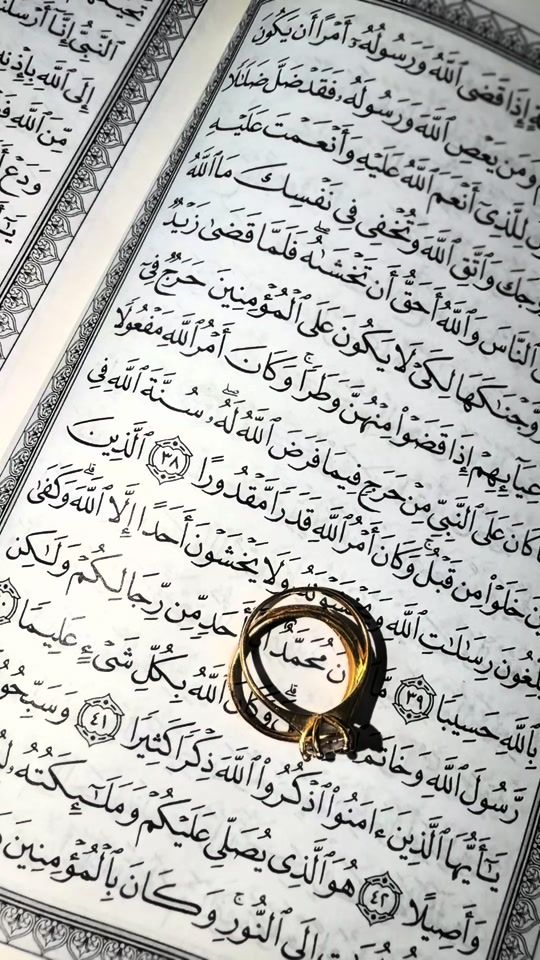 إِذَا قَضَى ٱللَّهُ وَرَسُولُهُۥٓ أَمْرًا أَن يَكُونَ
وَمَن يَعْصِ ٱللَّهَ وَرَسُولَهُۥ فَقَدْ ضَلَّ ضَلَٰلًا
لِلَّذِىٓ أَنْعَمَ ٱللَّهُ عَلَيْهِ وَأَنْعَمْتَ عَلَيْهِ
وَٱتَّقِ ٱللَّهَ وَتُخْفِى فِى نَفْسِكَ مَا ٱللَّهُ
ٱلنَّاسَ وَٱللَّهُ أَحَقُّ أَن تَخْشَىٰهُ ۖ فَلَمَّا قَضَىٰ زَيْدٌ
زَوَّجْنَٰكَهَا لِكَىْ لَا يَكُونَ عَلَى ٱلْمُؤْمِنِينَ حَرَجٌ فِىٓ
أَدْعِيَآئِهِمْ إِذَا قَضَوْا۟ مِنْهُنَّ وَطَرًا ۚ وَكَانَ أَمْرُ ٱللَّهِ مَفْعُولًا
كَانَ عَلَى ٱلنَّبِىِّ مِنْ حَرَجٍ فِيمَا فَرَضَ ٱللَّهُ لَهُۥ ۖ سُنَّةَ ٱللَّهِ فِى
خَلَوْا۟ مِن قَبْلُ ۚ وَكَانَ أَمْرُ ٱللَّهِ قَدَرًا مَّقْدُورًا ٣٨ ٱلَّذِينَ
يُبَلِّغُونَ رِسَٰلَٰتِ ٱللَّهِ وَيَخْشَوْنَهُۥ وَلَا يَخْشَوْنَ أَحَدًا إِلَّا ٱللَّهَ ۗ وَكَفَىٰ
بِٱللَّهِ حَسِيبًا ٣٩ مَّا كَانَ مُحَمَّدٌ أَحَدٍ مِّن رِّجَالِكُمْ وَلَٰكِن
رَّسُولَ ٱللَّهِ وَخَاتَمَ ۗ وَكَانَ ٱللَّهُ بِكُلِّ شَىْءٍ عَلِيمًا
يَٰٓأَيُّهَا ٱلَّذِينَ ءَامَنُوا۟ ٱذْكُرُوا۟ ٱللَّهَ ذِكْرًا كَثِيرًا ٤١ وَسَبِّحُو
وَأَصِيلًا ٤٢ هُوَ ٱلَّذِى يُصَلِّى عَلَيْكُمْ وَمَلَٰٓئِكَتُهُۥ
إِلَى ٱلنُّورِ ۚ وَكَانَ بِٱلْمُؤْمِنِينَ
ٱلنَّبِىُّ إِنَّآ أَرْسَلْنَ
إِلَى ٱللَّهِ بِإِذْنِهِ
مِّنَ ٱللَّهِ
وَدَعْ